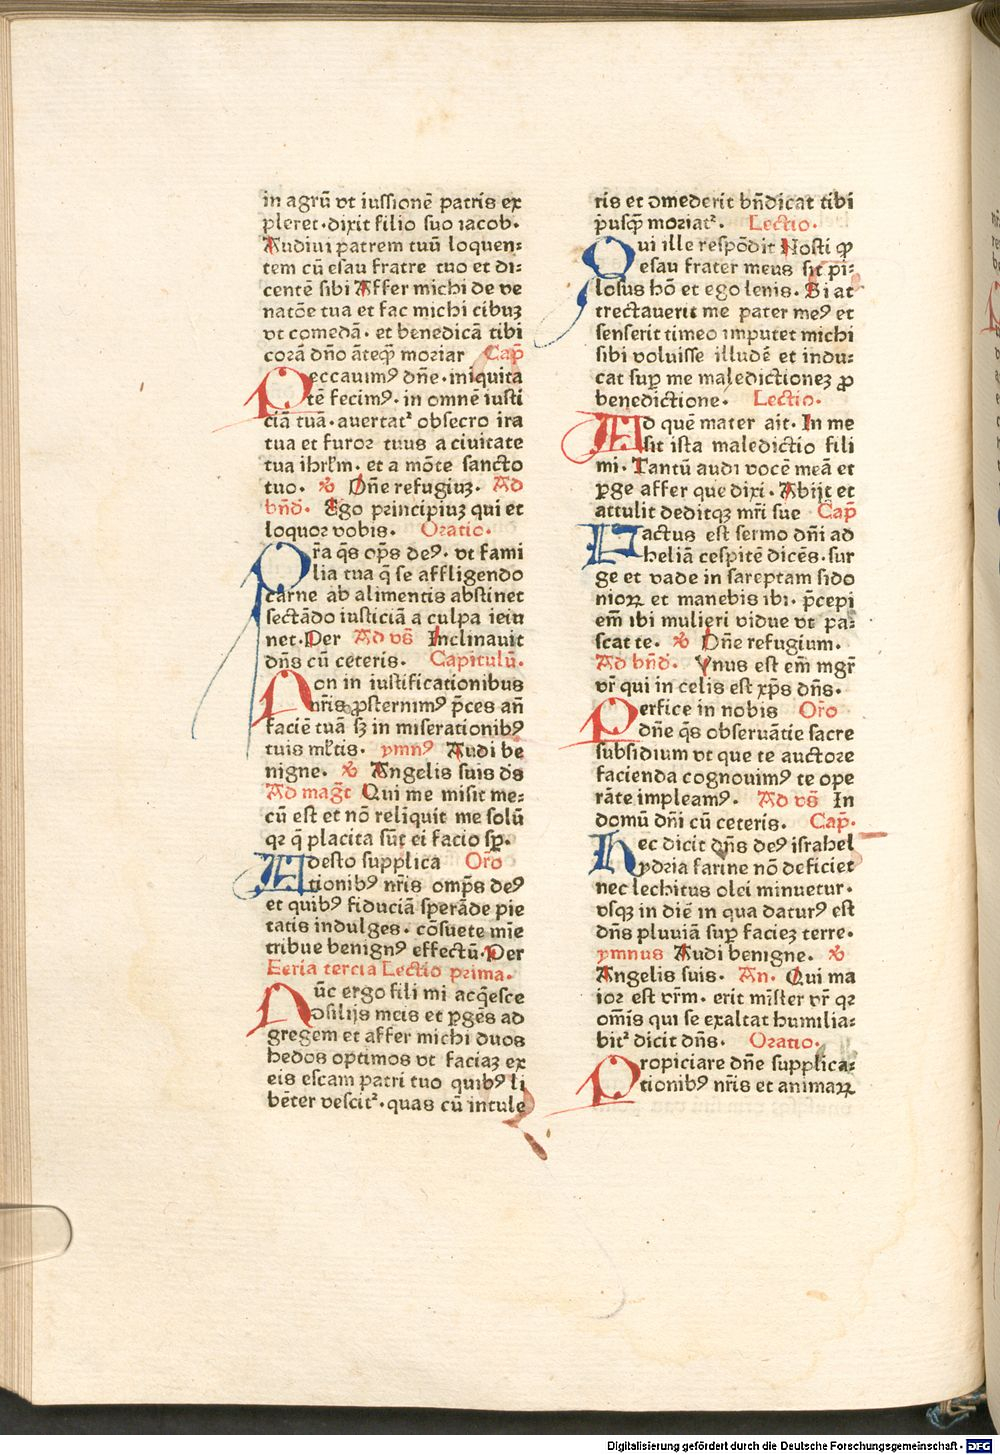 in agrū vt iussionē patris ex
pleret · dixit filio suo iacob ·
Audiui patrem tuū loquen⸗
tem cū esau fratre tuo et di⸗
centē sibi Affer michi de ve
natōe tua et fac michi cibuꝫ
vt comedā · et benedicā tibi
corā dño āteqū moriar Cap̄
Peccauimꝰ dñe · iniquita
tē fecimꝰ · in omnē iusti
ciā tuā · auertat᷑ obsecro ira
tua et furor tuus a ciuitate
tua ihrl̄m · et a mōte sancto
tuo · ꝶ Dñe refugiuꝫ · Ad
bn̄d · Ego principiuꝫ qui et
loquor vobis · Oratio ·
Pr̄a q̄s op̄s deꝰ · vt fami
lia tua q̄ se affligendo
carne ab alimentis abstinet
sectādo iusticiā a culpa ieiu
net · Per Ad vs̄ Inclinauit
dn̄s cū ceteris · Capitulū ·
Non in iustificationibus
nr̄is ꝓsternimꝰ p̄ces añ
faciē tuā sꝫ in miserationibꝰ
tuis ml̄tis · ymnꝰ Audi be
nigne · ꝶ Angelis suis dꝰs
Ad maḡt Qui me misit me⸗
cū est et nō reliquit me solū
qꝛ q̄ placita sūt ei facio sp̄ ·
Adesto supplica Oro
tionibꝰ nr̄is omp̄s deꝰ
et quibꝰ fiduciā sperāde pie
tatis indulges · cōsuete mīe
tribue benignꝰ effectū · Per
Feria tercia Lectio prima ·
Nūc ergo fili mi acq̄esce
ꝯsilijs meis et ꝑges ad
gregem et affer michi duos
hedos optimos vt faciaꝫ ex
eis escam patri tuo quibꝰ li
bēter vescit᷑ · quas cū intule
ris et ꝯmederit bn̄dicat tibi
p̄usqꝫ̄ moriat᷑ · Lectio ·
Qui ille respōdit Nosti ꝙ
esau frater meus sit pi⸗
losus hō et ego lenis · Si at
trectauerit me pater meꝰ et
senserit timeo imputet michi
sibi voluisse illudē et indu⸗
cat suꝑ me maledictioneꝫ ꝓ
benedictione · Lectio ·
Ad quē mater ait · In me
sit ista maledictio fili
mi · Tantū audi vocē meā et
ꝑge affer que dixi · Abijt et
attulit deditqꝫ mr̄i sue Cap̄
Factus est sermo dñi ad
heliā cespitē dicēs · sur
ge et vade in sareptam sido
nioꝝ et manebis ibi · p̄cepi
em̄ ibi mulieri vidue vt pa⸗
scat te · ꝶ Dñe refugium ·
Ad bn̄d · Vnus est em̄ mgr̄
vr̄ qui in celis est xp̄s dn̄s ·
Perfice in nobis Oro
dñe q̄s obseruātie sacre
subsidium vt que te auctore
facienda cognouimꝰ te ope
rāte impleamꝰ · Ad vs̄ In
domū dñi cū ceteris · Cap̄ ·
Hec dicit dn̄s deꝰ israhel
ydria farine nō deficiet
nec lechitus olei minuetur ·
vsqꝫ in diē in qua daturꝰ est
dn̄s pluuiā suꝑ facieꝫ terre ·
ymnus Audi benigne · ꝶ
Angelis suis · An · Qui ma
ior est vr̄m · erit mīster vr̄ qꝛ
om̄is qui se exaltat humilia⸗
bit᷑ dicit dn̄s · Oratio ·
Propiciare dñe supplica⸗
tionibꝰ nr̄is et animaꝝ
Digitalisierung gefördert durch die Deutsche Forschungsgemeinschaft - DFG